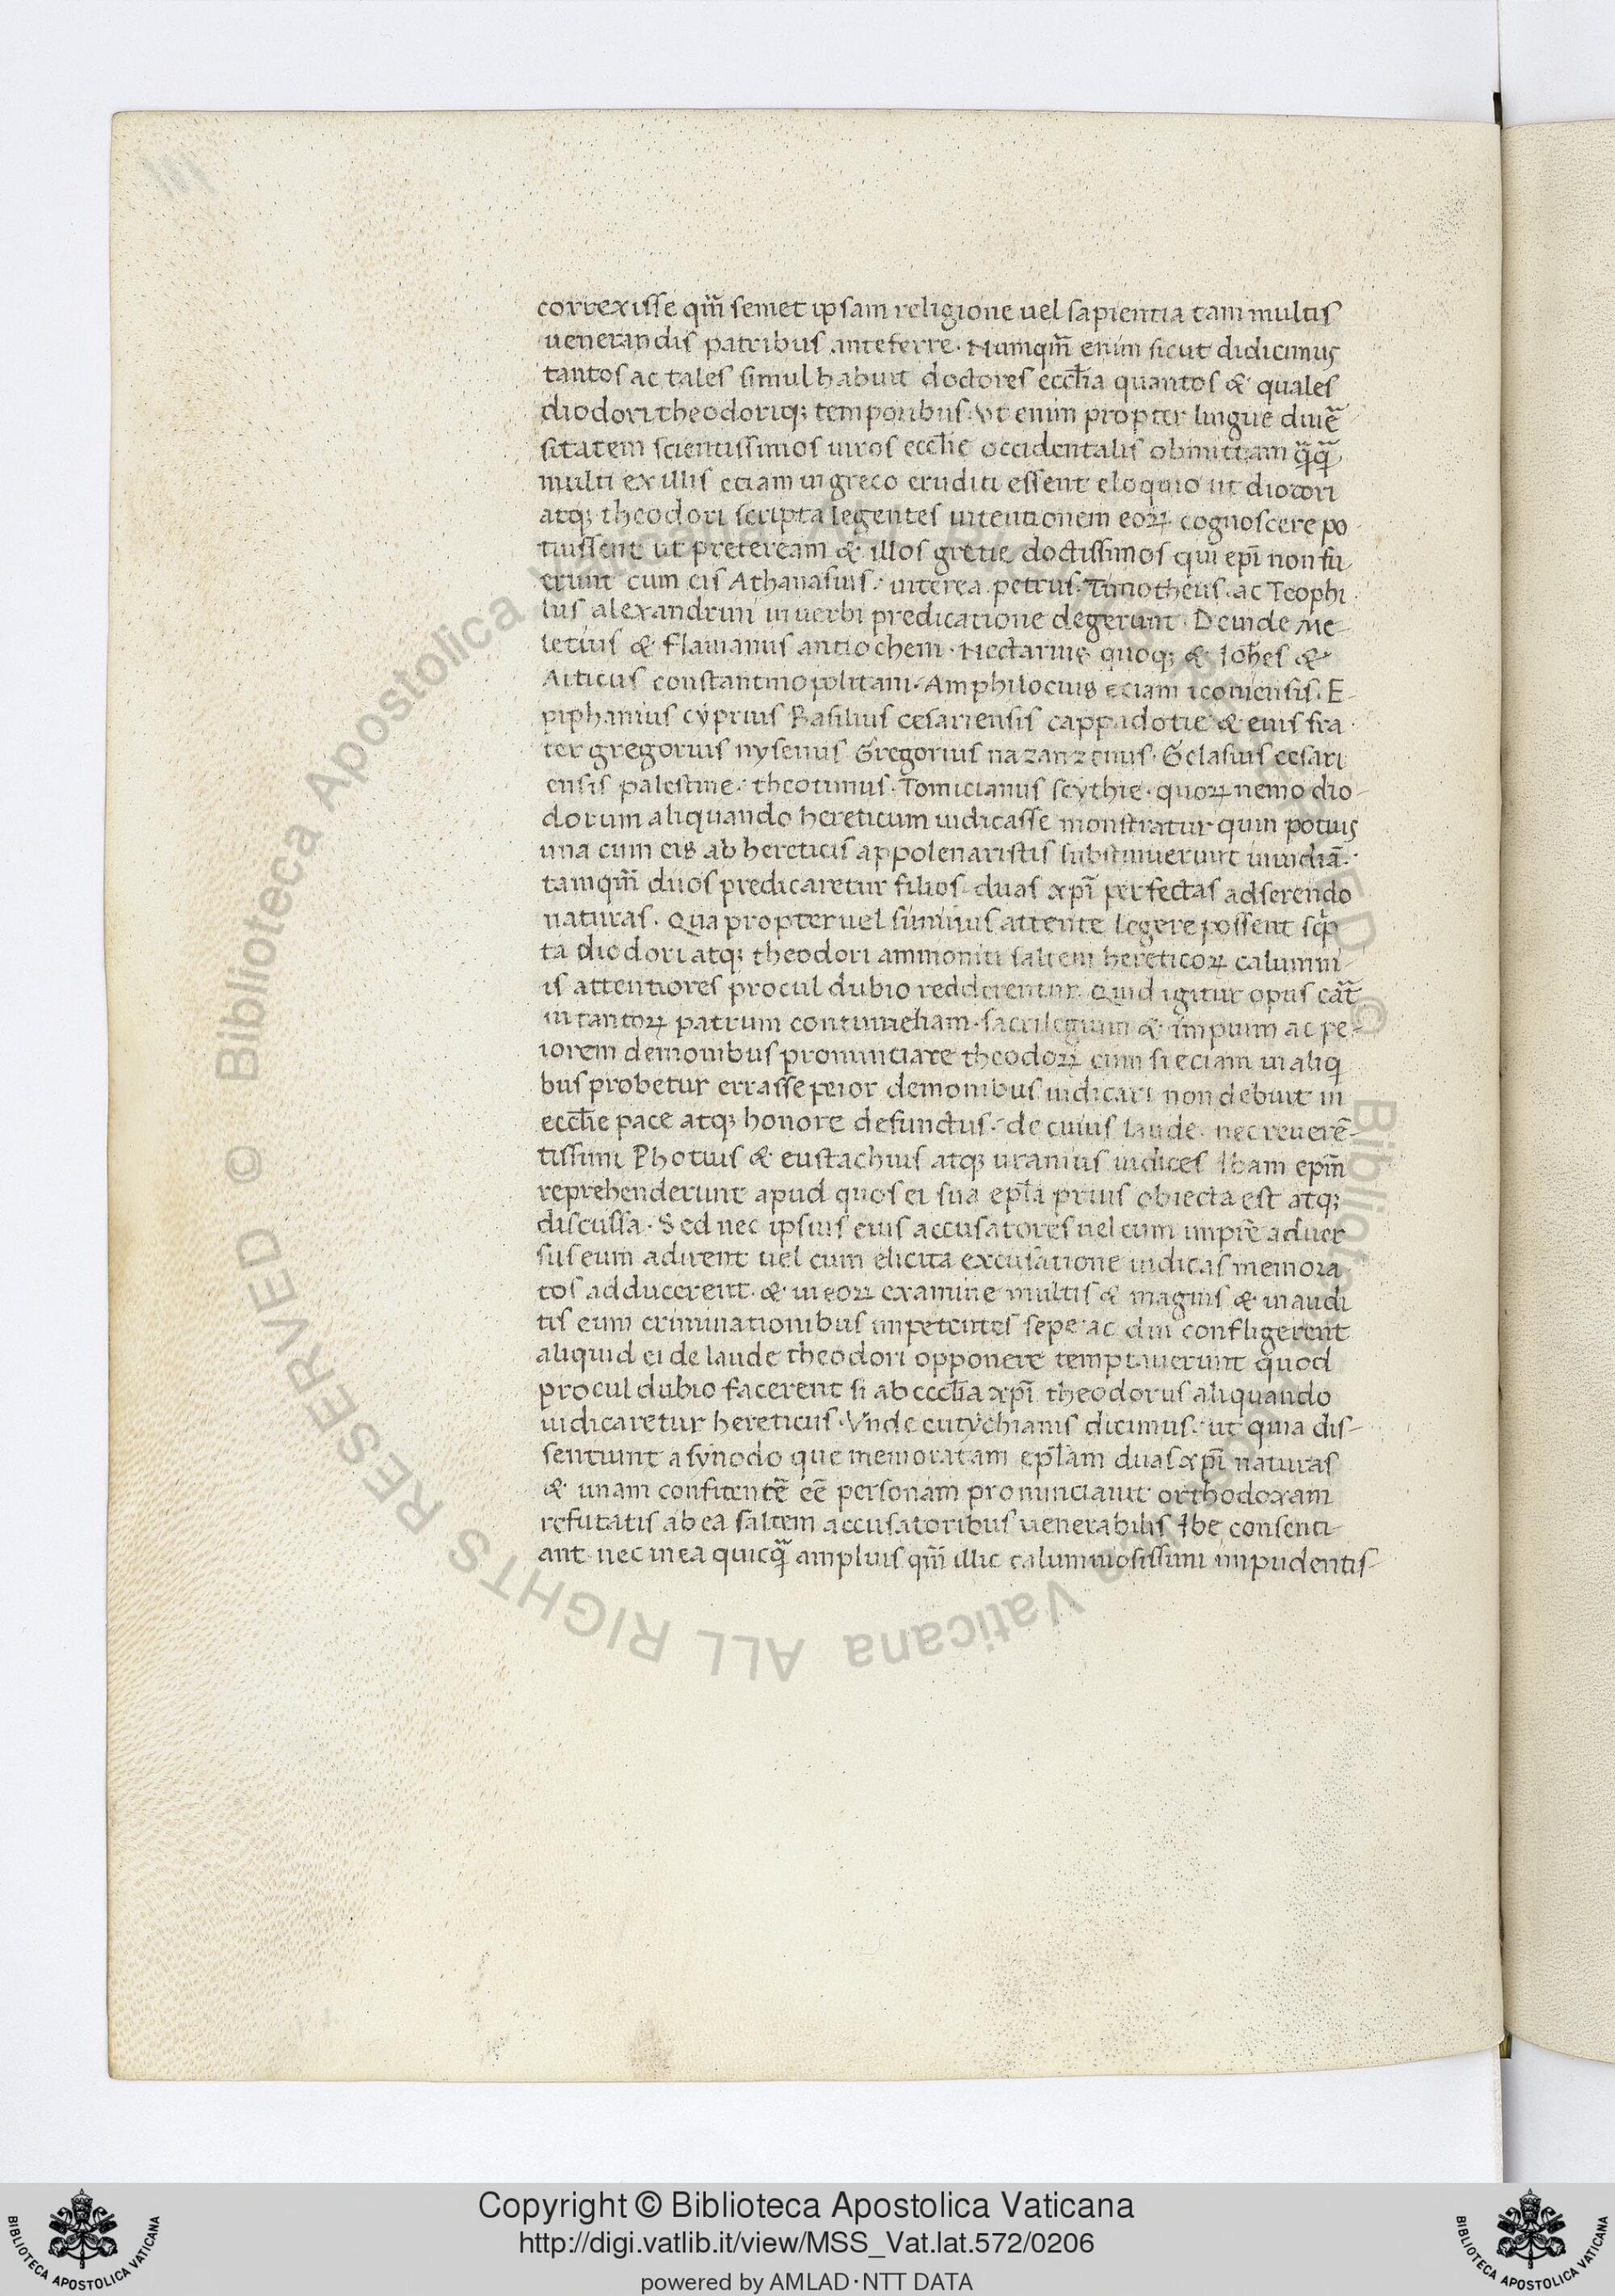 correxisse qm̃ semet ipsam religione uel sapientia tam multis
uenerandis patribus anteferre · Numqm̃ enim sicut didicimus
tantos ac tales simul habuit doctores eccl̃ia quantos & quales
diodori theodoriq; temporibus · Vt enim propter lingue diuẽ
sitatem scientissimos uiros eccl̃ie occidentalis obmittam
multi ex illis eciam in greco eruditi essent eloquio ut diodori
atq; theodori scripta legentes intentionem eoꝝ cognoscere po
tuissent ut preteream & illos gretie doctissimos qui ep̃i non fu
erunt cum eis Athanasius · interea petrus · Timotheus · ac Teophi
lus alexandrini in uerbi predicatione degerunt · Deinde Me-
letius & Flauianus antiocheni · Nectarius quoq; & Ioh̃es &
Atticus constantinopolitani · Amphilocius eciam iconiensis · E-
piphanius cyprius Basilius cesariensis cappadotie & eius fra
ter gregorius nysenus Gregorius nazanzenus · Gelasius cesari
ensis palestine · theotimus · Tomicianus scythie · quoꝝ nemo dio-
dorum aliquando hereticum iudicasse monstratur quin potius
una cum eis ab hereticis appolenaristis substinuerunt inuidiã ·
tamqm̃ duos predicaretur filios · duas xp̃i perfectas adserendo
naturas · Qua propter uel attente legere possent
ta diodori atq; theodori ammoniti saltem hereticoꝝ calumni-
is attentiores procul dubio redderentur · Quid igitur opus
in tantoꝝ patrum contumeliam · sacrilegum & impium ac pe-
iorem demonibus pronunciare theodoꝝ cum si eciam in aliq
bus probetur errasse peior demonibus iudicari non debuit in
eccl̃ie pace atq; honore defunctus · de cuius laude · nec reuerẽ-
tissimi Photius & eustachius atq; uranius iudices Ibam ep̃m
reprehenderunt apud quos ei sua epl̃a prius obiecta est atq;
discussa · Sed nec ipsius eius accusatores uel cum aduer
sus eum adirent uel cum elicita excusatione iudicas memora
tos adducerent · & in eoꝝ examine multis & magnis & inaudi
tis eum criminationibus impetentes sepe ac diu confligerent
aliquid ei de laude theodori opponere temptauerunt quod
procul dubio facerent si ab eccl̃ia xp̃i theodorus aliquando
iudicaretur hereticus · Vnde eutychianis dicimus · ut quia dis-
sentiunt a synodo que memoratam epl̃am duas xp̃i naturas
& unam confitentẽ eẽ personam pronunciauit orthodoxam
refutatis ab ea saltem accusatoribus uenerabilis Ibe consenti-
ant · nec in ea quicq̃ amplius qm̃ illic calumniosissimi impudentis-
Copyright © Biblioteca Apostolica Vaticana
http://digi.vatlib.it/view/MSS_Vat.lat.572/0206
powered by AMLAD·NTT DATA
BIBLIOTECA APOSTOLICA VATICANA
BIBLIOTECA APOSTOLICA VATICANA
© Biblioteca Apostolica Vaticana ALL RIGHTS RESERVED